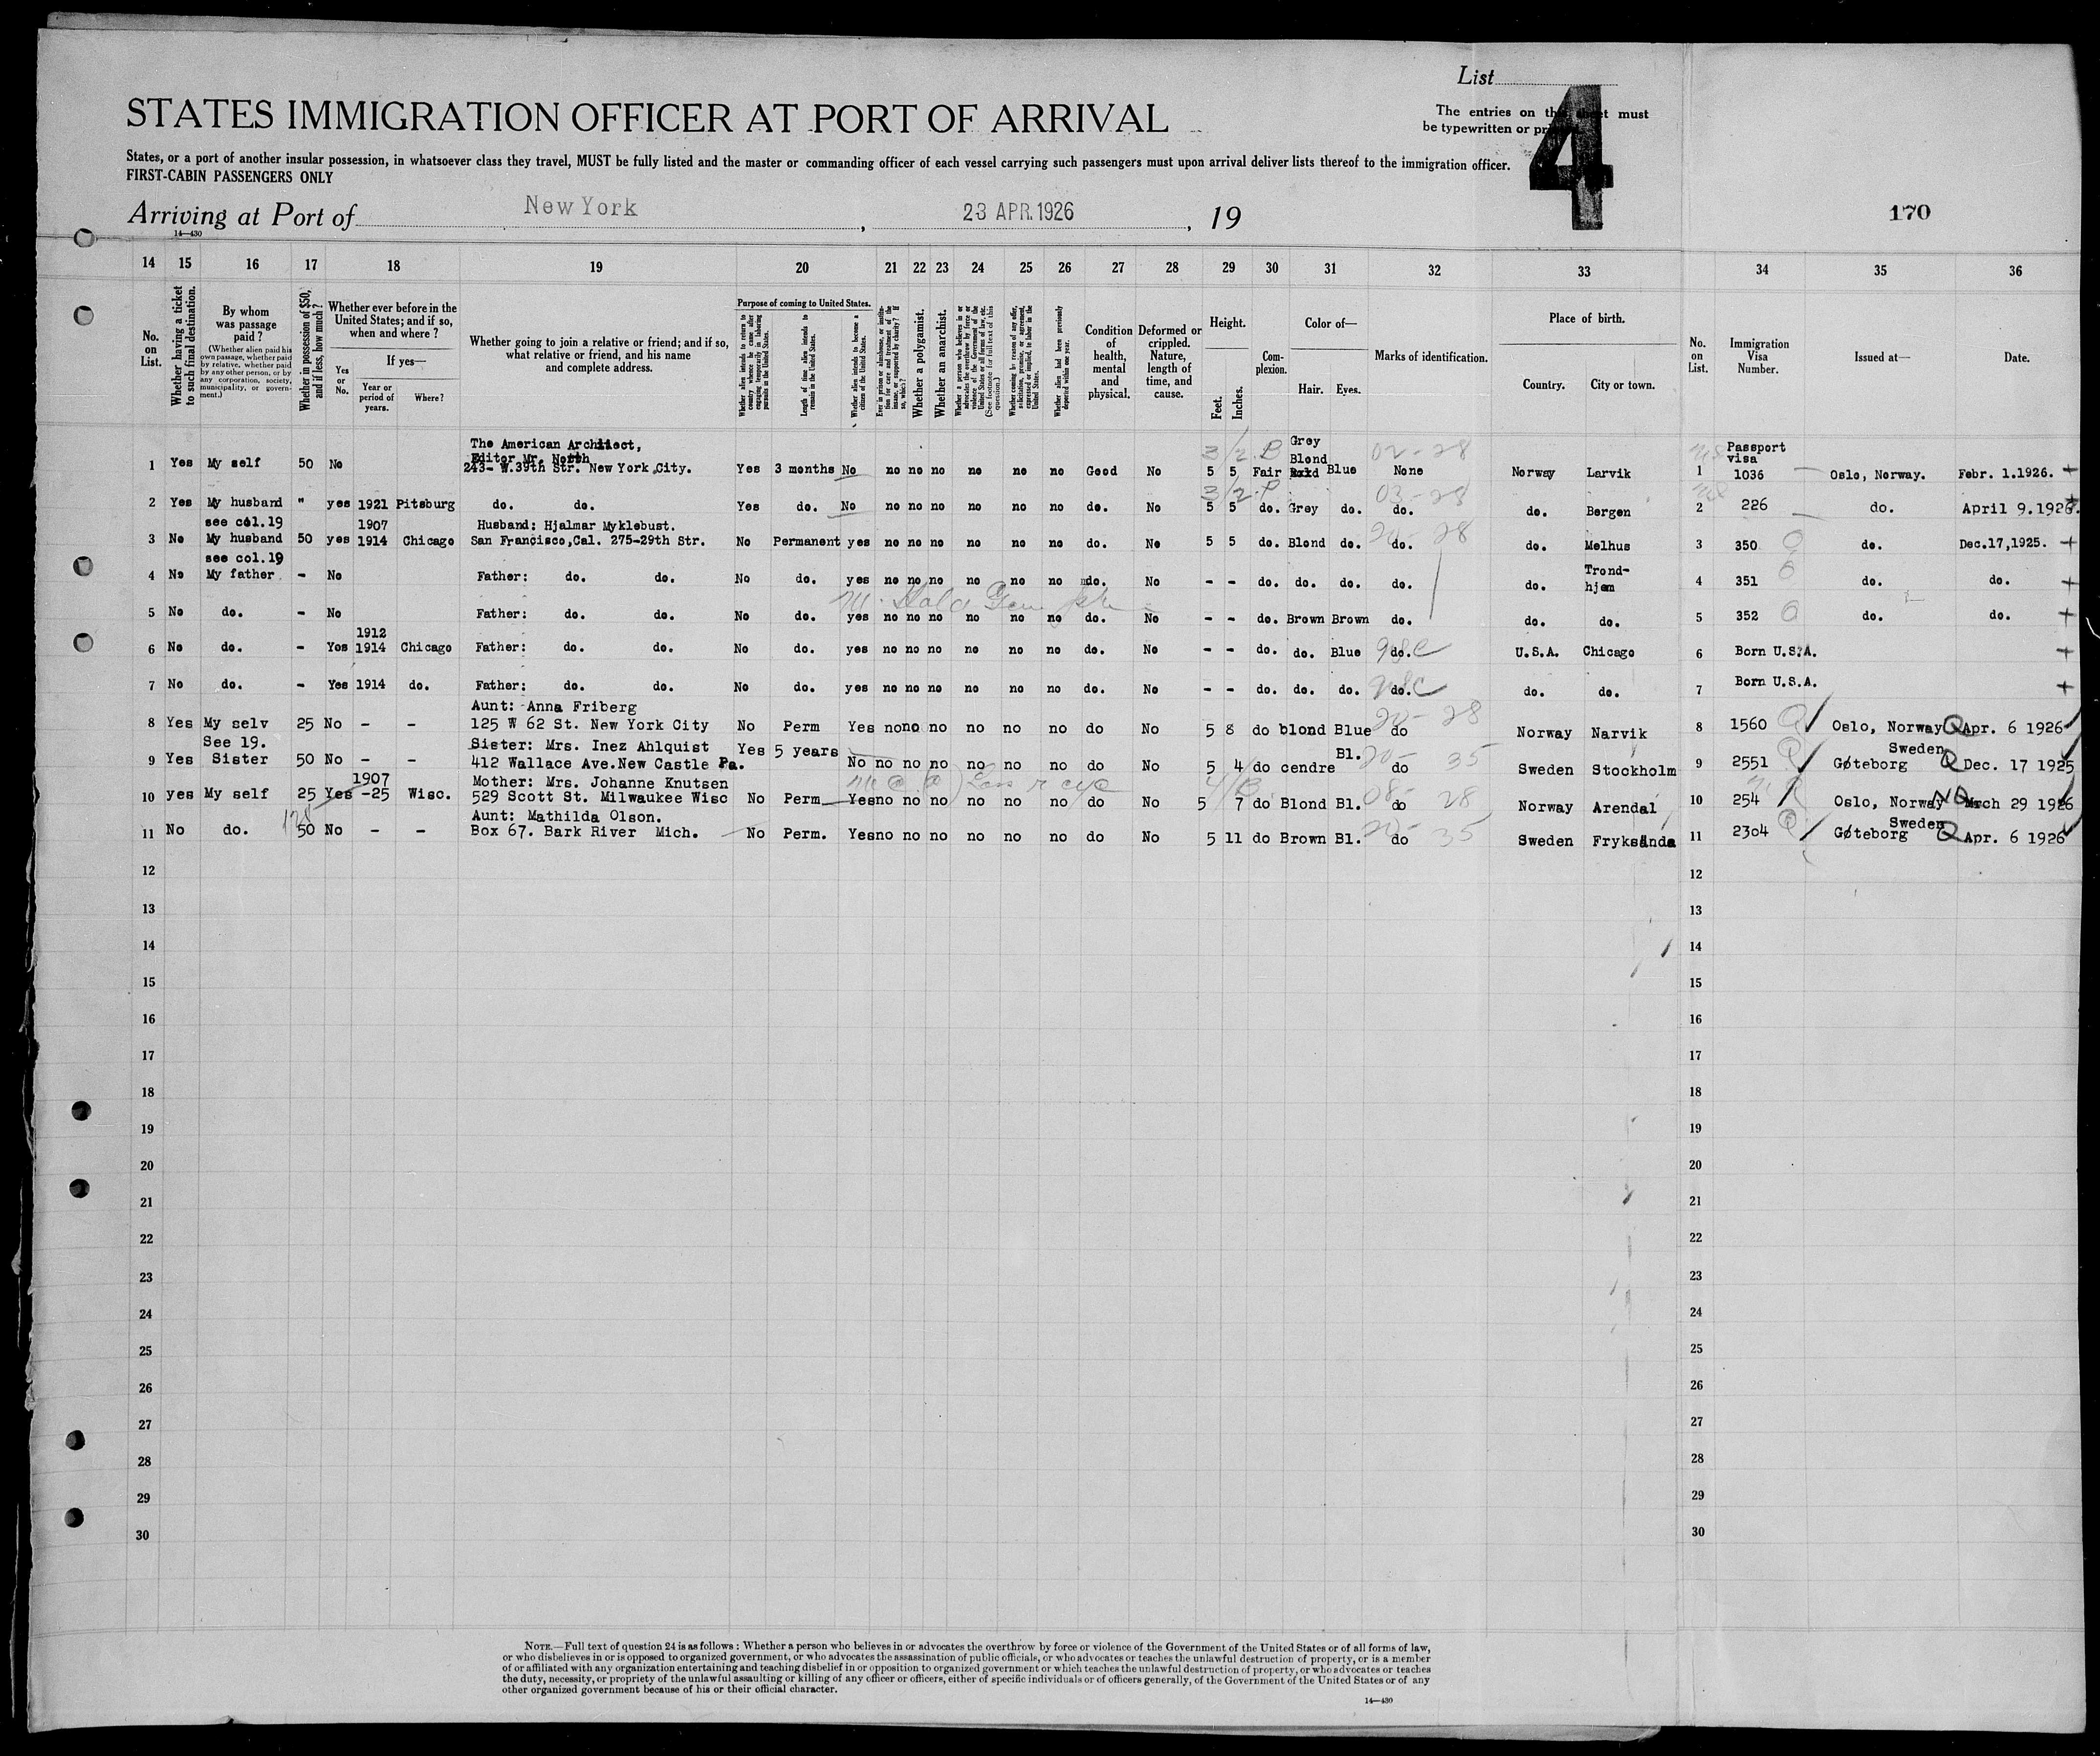 List
STATES IMMIGRATION OFFICER AT PORT OF ARRIVAL
4
The entries on this sheet must
be typewritten or
States, or a port of another insular possession, in whatsoever class they travel, MUST be fully listed and the master or commanding officer of each vessel carrying such passengers must upon arrival deliver lists thereof to the immigration officer.
FIRST-CABIN PASSENGERS ONLY
Arriving at Port of New York, 23 APR. 1926, 19
170
14—430
14 15 16 17 18 19 20 21 22 23 24 25 26 27 28 29 30 31 32 33 34 35 36
No. on List.
Whether having a ticket to such final destination.
By whom was passage paid?
(Whether alien paid his own passage, whether paid by relative, whether paid by any other person, or by any corporation, society, municipality, or government.)
Whether in possession of $50, and if less, how much?
Whether ever before in the United States; and if so, when and where?
Yes or No.
If yes—
Year or period of years.
Where?
Whether going to join a relative or friend; and if so, what relative or friend, and his name and complete address.
Purpose of coming to United States.
Whether alien intends to return to country whence he came after engaging temporarily in laboring pursuits in the United States.
Length of time alien intends to remain in the United States.
Whether alien intends to become a citizen of the United States.
Ever in prison or almshouse, or institution for care and treatment of the insane, or supported by charity? If so, which?
Whether a polygamist.
Whether an anarchist.
Whether a person who believes in or advocates the overthrow by force or violence of the Government of the United States or all forms of law, etc. (See footnote for full text of this question.)
Whether coming by reason of any offer, solicitation, promise, or agreement, expressed or implied, to labor in the United States.
Whether alien had been previously deported within one year.
Condition of health, mental and physical.
Deformed or crippled. Nature, length of time, and cause.
Height.
Feet. Inches.
Complexion.
Color of—
Hair. Eyes.
Marks of identification.
Place of birth.
Country. City or town.
No. on List.
Immigration Visa Number.
Issued at—
Date.
The American Architect, Grey Passport
Editor Mr. North Blond visa
1 Yes My self 50 No 243- W.39th Str. New York City. Yes 3 months No no no no no no no Good No 5 5 Fair Blue None Norway Larvik 1 1036 Oslo, Norway. Febr. 1.1926.
2 Yes My husband " yes 1921 Pitsburg do. do. Yes do. No no no no no no no do. No 5 5 do. Grey do. do. do. Bergen 2 226 do. April 9.1926.
see col.19 1907 Husband: Hjalmar Myklebust.
3 No My husband 50 yes 1914 Chicago San Francisco,Cal. 275-29th Str. No Permanent yes no no no no no no do. No 5 5 do. Blond do. do. do. Melhus 3 350 do. Dec.17,1925.
see col.19 Trond-
4 No My father - No Father: do. do. No do. yes no no no no no no do. No - - do. do. do. do. do. hjem 4 351 do. do.
5 No do. - No Father: do. do. No do. yes no no no no no no do. No - - do. Brown Brown do. do. do. 5 352 do. do.
1912
6 No do. - Yes 1914 Chicago Father: do. do. No do. yes no no no no no no do. No - - do. do. Blue do. U.S.A. Chicago 6 Born U.S.A.
7 No do. - Yes 1914 do. Father: do. do. No do. yes no no no no no no do. No - - do. do. do. do. do. do. 7 Born U.S.A.
Aunt: Anna Friberg
8 Yes My selv 25 No - - 125 W 62 St. New York City No Perm Yes no no no no no no do No 5 8 do blond Blue do Norway Narvik 8 1560 Oslo, Norway Apr. 6 1926
See 19. Sister: Mrs. Inez Ahlquist Yes 5 years Bl. Sweden
9 Yes Sister 50 No - - 412 Wallace Ave.New Castle Pa. No no no no no no no do No 5 4 do cendre do Sweden Stockholm 9 2551 Gøteborg Dec. 17 1925
1907 Mother: Mrs. Johanne Knutsen
10 yes My self 25 Yes -25 Wisc. 529 Scott St. Milwaukee Wisc No Perm Yes no no no no no no do No 5 7 do Blond Bl. do Norway Arendal 10 254 Oslo, Norway March 29 1926
Aunt: Mathilda Olson. Sweden
11 No do. 50 No - - Box 67. Bark River Mich. No Perm. Yes no no no no no no do No 5 11 do Brown Bl. do Sweden Fryksände 11 2304 Gøteborg Apr. 6 1926
12 12
13 13
14 14
15 15
16 16
17 17
18 18
19 19
20 20
21 21
22 22
23 23
24 24
25 25
26 26
27 27
28 28
29 29
30 30
NOTE.—Full text of question 24 is as follows: Whether a person who believes in or advocates the overthrow by force or violence of the Government of the United States or of all forms of law,
or who disbelieves in or is opposed to organized government, or who advocates the assassination of public officials, or who advocates or teaches the unlawful destruction of property, or is a member
of or affiliated with any organization entertaining and teaching disbelief in or opposition to organized government or which teaches the unlawful destruction of property, or who advocates or teaches
the duty, necessity, or propriety of the unlawful assaulting or killing of any officer or officers, either of specific individuals or of officers generally, of the Government of the United States or of any
other organized government because of his or their official character.
14—430